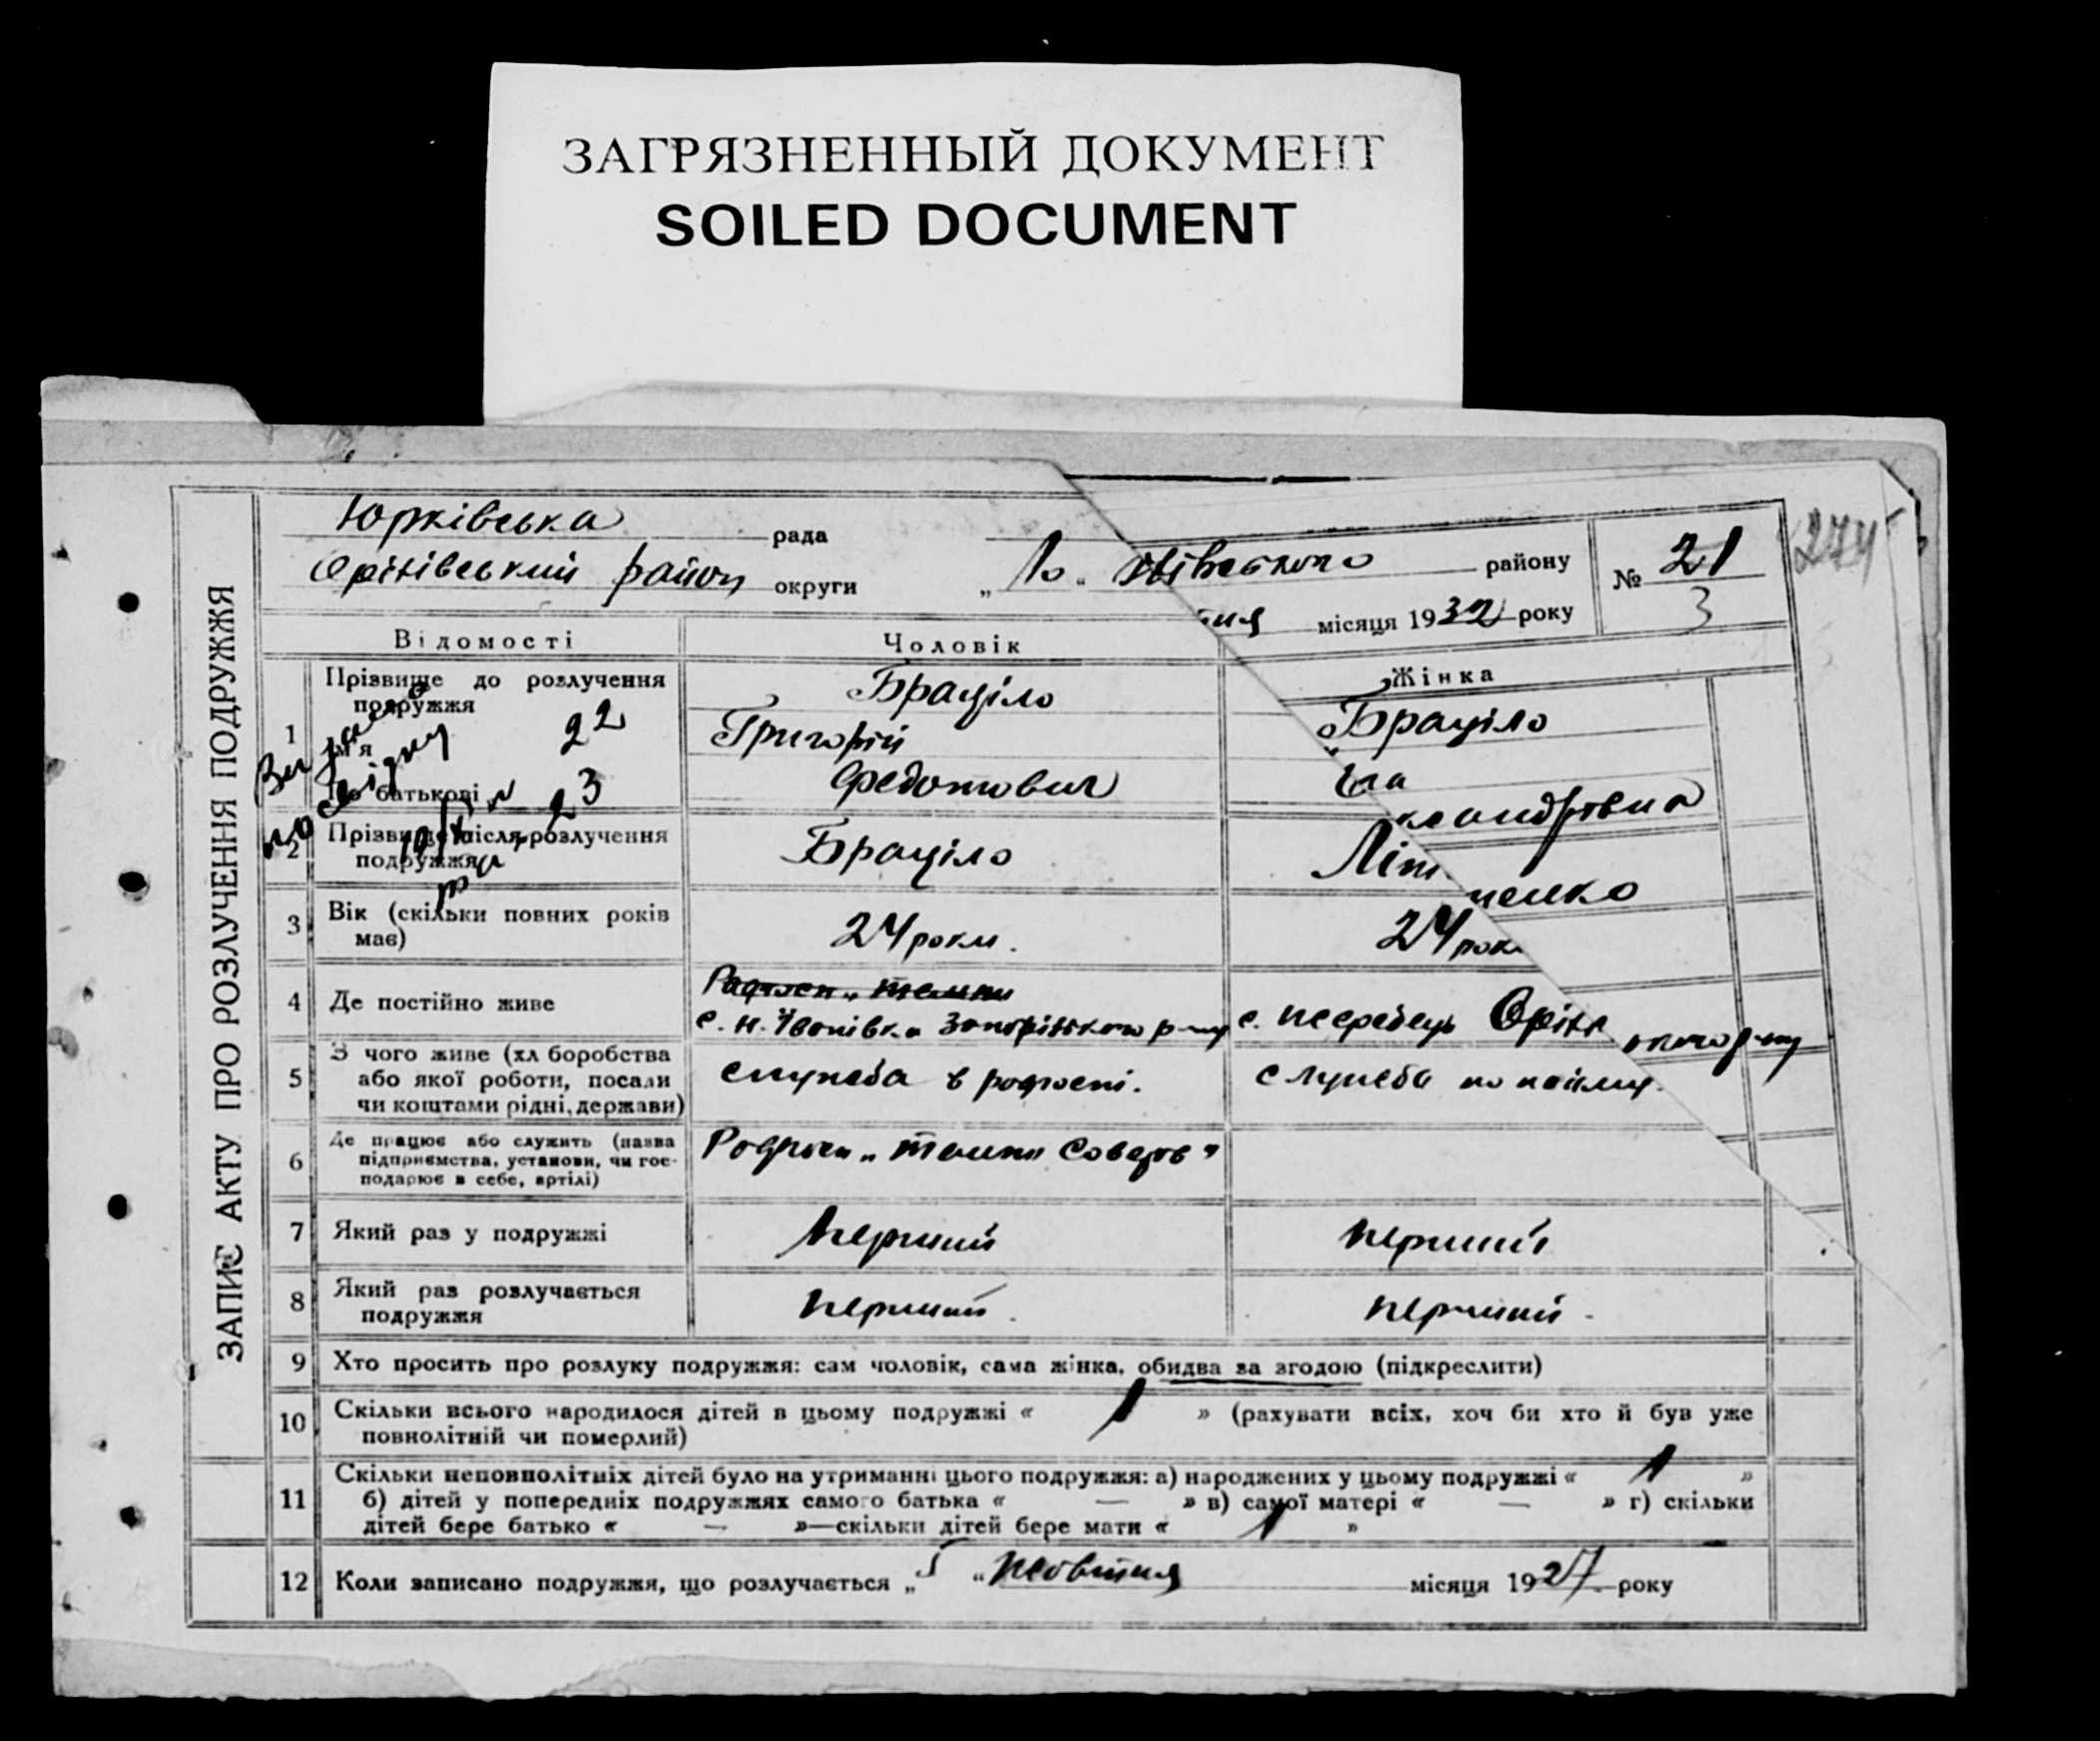 ЗАГРЯЗНЕННЫЙ ДОКУМЕНТ
SOILED DOCUMENT
274
ЗАПИС АКТУ ПРО РОЗЛУЧЕННЯ ПОДРУЖЖЯ
Юрківська рада
Оріхівський район округи
„10„ району
місяця 1932 року
№ 21
3
Відомості Чоловік Жінка
1 Прізвище до розлучення подружжя Браціло Браціло
Ім'я Григорій
По батькові Федотович
22
23
2 Прізвище після розлучення
подружжя Браціло
3 Вік (скільки повних років
має) 24 роки. 24 рок
4 Де постійно живе
с. Н. Іванівка Запорізького р-ну с. Жеребець Оріх
5 З чого живе (хл боробства
або якої роботи, посади
чи коштами рідні, держави) служба в родгоспі. служба по найму.
6 Де працює або служить (назва
підприємства, установи, чи гос-
подарює в себе, артілі)
7 Який раз у подружжі перший перший
8 Який раз розлучається
подружжя перший. перший.
9 Хто просить про розлуку подружжя: сам чоловік, сама жінка, обидва за згодою (підкреслити)
10 Скільки всього народилося дітей в цьому подружжі « 1 » (рахувати всіх, хоч би хто й був уже
повнолітній чи померлий)
11 Скільки неповнолітніх дітей було на утриманні цього подружжя: а) народжених у цьому подружжі « 1 »
б) дітей у попередніх подружжях самого батька « — » в) самої матері « — » г) скільки
дітей бере батько « — »—скільки дітей бере мати « 1 »
12 Коли записано подружжя, що розлучається „5„ жовтня місяця 1927 року